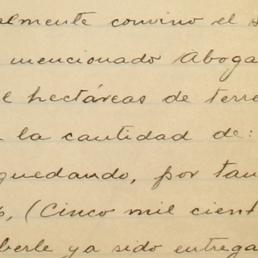 almente convino el s
mencionado Aboga
e hectáreas de terre
la cantidad de:
quedando, por tan
(Cinco mil cient
berle ya sido entrega